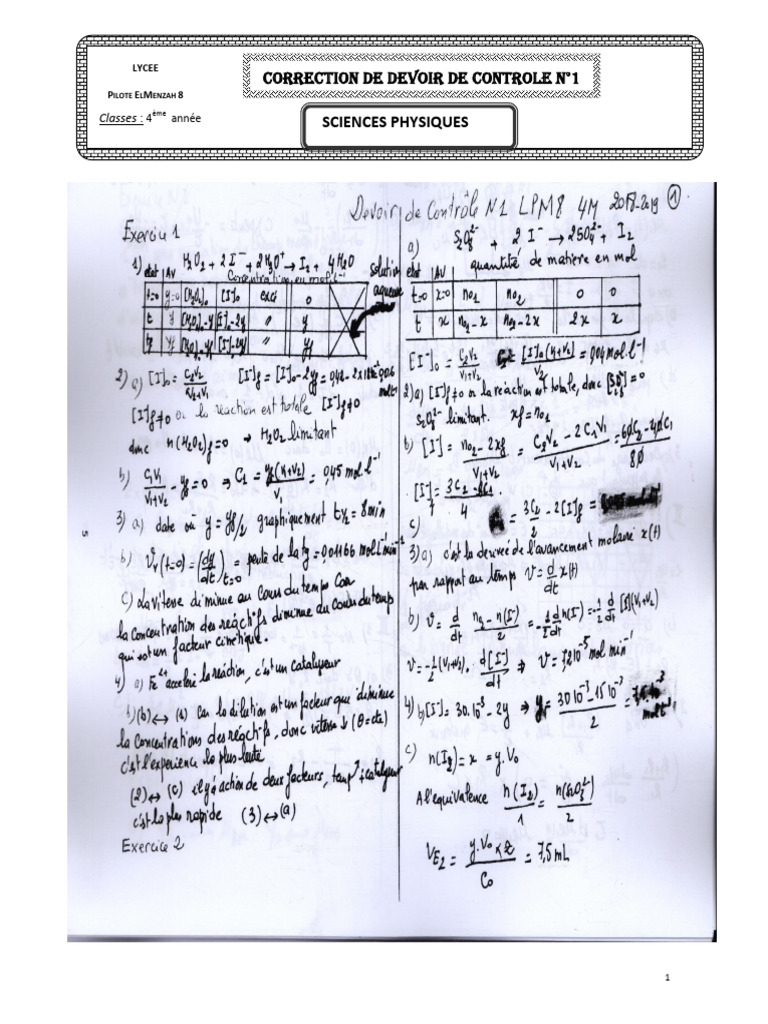 LYCEE
PILOTE ELMENZAH 8
Classes : 4ème année
CORRECTION DE DEVOIR DE CONTROLE N°1
SCIENCES PHYSIQUES
Devoir de Contrôle N1 LPM8 4M 2018-2019 1
Exercice 1
1) H2O2 + 2 I⁻ + 2 H3O⁺ → I2 + 4 H2O
etat AV Concentration en mol.l⁻¹
solution aqueuse
t=0 y=0 [H2O2]0 [I⁻]0 excé 0
t y [H2O2]0-y [I⁻]0-2y " y
tf yf [H2O2]0-yf [I⁻]0-2yf " yf
2) a) [I⁻]0 = C2V2/(V2+V1) [I⁻]f = [I⁻]0-2yf =
[I⁻]f≠0 or la reaction est totale [I⁻]f≠0
donc n(H2O2)f=0 → H2O2 limitant
b) C1V1/(V1+V2) - yf = 0 ⇒ C1 = yf(V1+V2)/V1 = 0,45 mol.l⁻¹
3) a) date où y = yf/2 graphiquement t1/2 = 8 min
b) Vv(t=0) = (dy/dt)t=0 = pente de la tg = 0,01166 mol.l⁻¹min⁻¹
c) La vitesse diminue au cours du temps Car
la concentration des réactifs diminue du cours du temp
qui est un facteur cinétique.
4) a) Fe²⁺ accelere la réaction, c'est un catalyseur
b) (b) ↔ (1) Car la dilution est un facteur que diminue
la concentrations des réactifs, donc vitesse ↓ (θ=cte)
c'est l'experience la plus lente
(2) ↔ (c) il y a action de deux facteurs, temp↑ + catalyseur
c'est la plus rapide (3) ↔ (a)
Exercice 2
a) S2O8²⁻ + 2 I⁻ → 2SO4²⁻ + I2
etat AV quantité de matière en mol
t=0 x=0 n01 n02 0 0
t x n01-x n02-2x 2x x
[I⁻]0 = C2V2/(V1+V2) C2 = [I⁻]0(V1+V2)/V2 = 0,04 mol.l⁻¹
2) a) [I⁻]f≠0 or la réaction est totale, donc [S2O8²⁻]f=0
S2O8²⁻ limitant. xf = n01
b) [I⁻] = (n02-2xf)/(V1+V2) = (C2V2-2C1V1)/(V1+V2) =
c)
= 3C2/2 - 2[I⁻]f =
3) a) c'est la dérivée de l'avancement molaire x(t)
par rapport au temps v = d/dt x(t)
b) v = d/dt (n02-n(I⁻))/2 = -1/2 d/dt n(I⁻) = -1/2 d/dt [I⁻](V1+V2)
v = -1/2 (V1+V2). d[I⁻]/dt ⇒ v = 7,2 10⁻⁵ mol min⁻¹
4) b) [I⁻] = 30.10⁻³ - 2y ⇒ y = (30 10⁻³ - 15 10⁻³)/2 = 7,5.10⁻³ mol.l⁻¹
c) n(I2) = x = y.V0
A l'equivalence n(I2)/1 = n(S2O3²⁻)/2
VE2 = y.V0 x 2/C0 = 7,5 mL
1